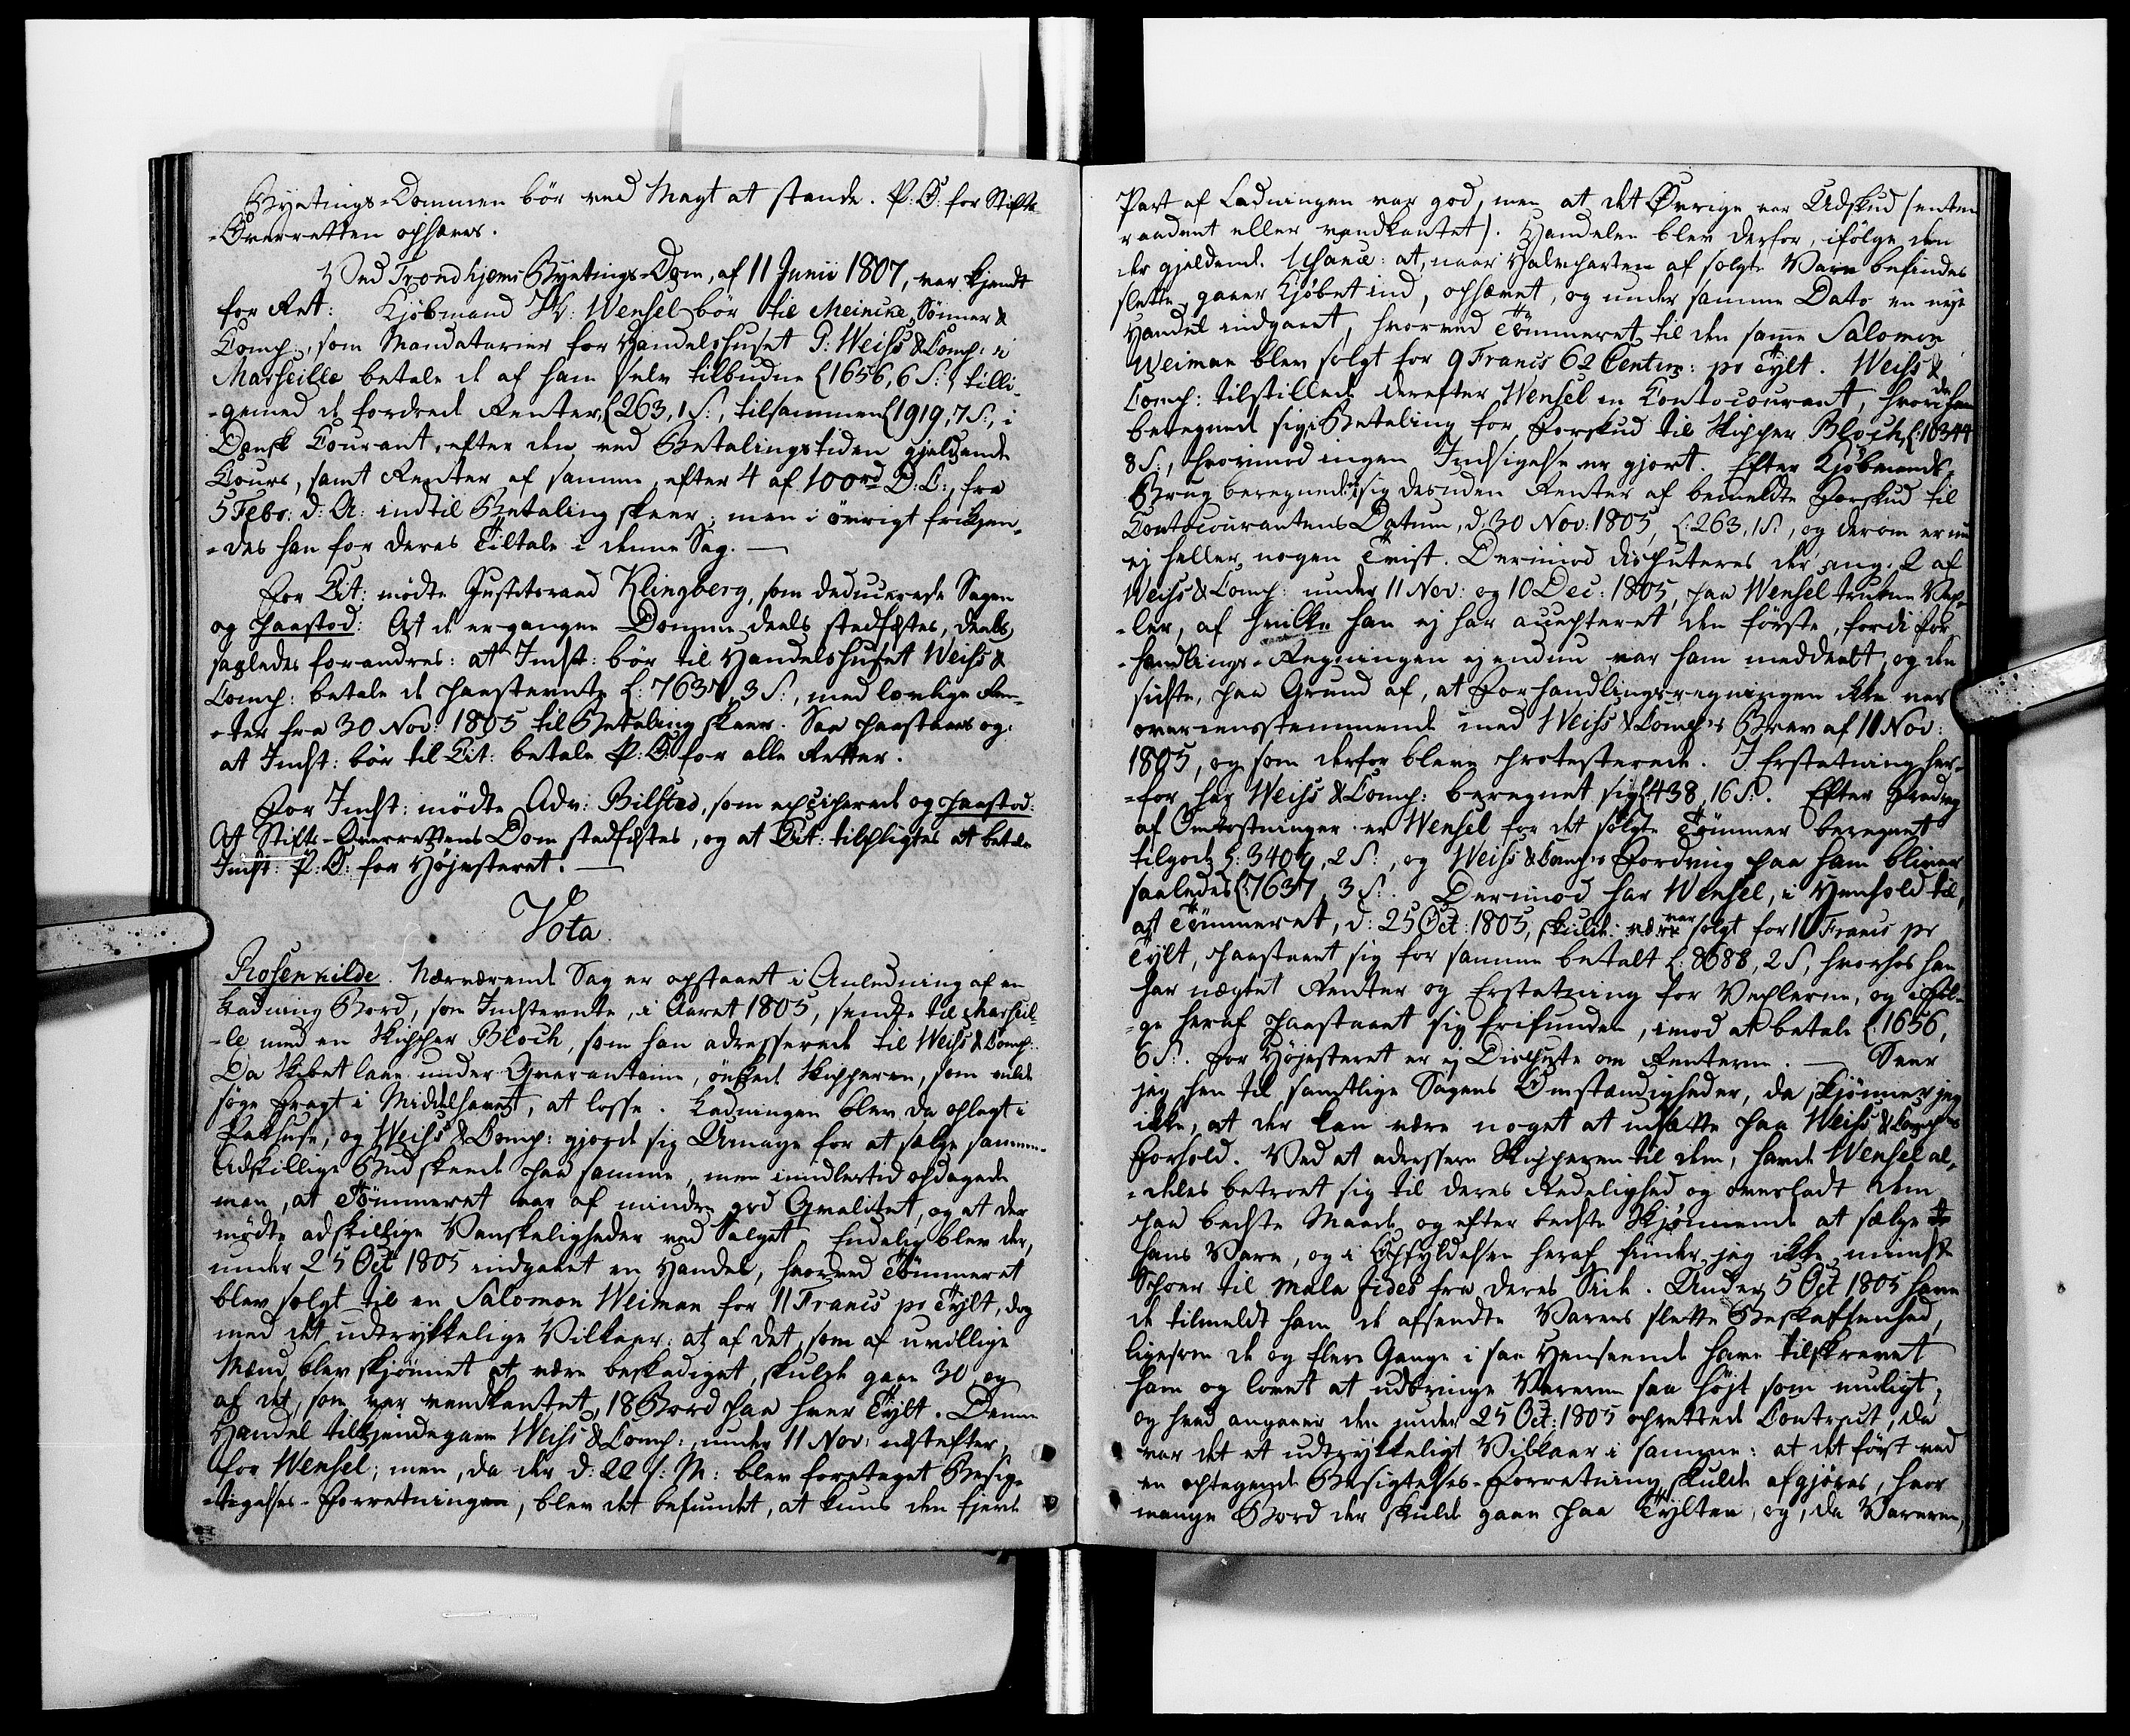 Byetings-Dommen bør ved Magt at stande. P: O: for Stifts-
-Overretten ophæves.
Ved Trondhjems Byetings-Dom, af 11 Junii 1807, var kjendt
for Ret: Kjøbmand H: Wensel bør til Meincke, Sønner &
Comp:, som Mandatarier for Handelshuset P: Weiss & Comp: i
Marseille betale de af ham selv tilbudne £ 1656, 6 S:, tilli-
-gemed de fordrede Renter, £ 263, 1 S:, tilsammen £ 1919, 7 S:, i
Dansk Courant, efter den ved Betalingstiden gjeldende
Cours, samt Renter af samme, efter 4 af 100rd D: C:, fra
5 Febr: d: A: indtil Betaling skeer; men i øvrigt frikjen-
-des han for deres Tiltale i denne Sag. —
For Cit: mødte Justitsraad Klingberg, som deducerede Sagen
og paastod: At de ergangne Domme deels stadfæstes, deels
saaledes forandres: at Indst: bør til Handelshuset Weiss &
Comp: betale de paastevnte £: 7637, 3 S:, med lovlige Ren-
-ter fra 30 Nov: 1805 til Betaling skeer. Saa paastaaes og:
at Indst: bør til Cit: betale P: O: for alle Retter.
For Indst: mødte Adv: Bilsted, som exciperede og paastod:
At Stifts-Overrettens Dom stadfæstes, og at Cit: tilpligtes at betale
Indst: P: O: for Højesteret. —
Vota.
Rosenkilde. Nærværende Sag er opstaaet i Anledning af en
Ladning Bord, som Indstevnte, i Aaret 1805, sendte til Marseil-
-le med en Skipper Bloch, som han adresserede til Weiss & Comp:.
Da Skibet laae under Qvarantaine, ønskede Skipperen, som vilde
søge Fragt i Middelhavet, at losse. Ladningen blev da oplagt i
Pakhuse, og Weiss & Comp: gjorde sig Umage for at sælge samme.
Adskillige Bud skeede paa samme, men imidlertid opdagede
man, at Tømmeret var af mindre god Qvalitet, og at der
mødte adskillige Vanskeligheder ved Salget. Endelig blev der,
under 25 Oct 1805 indgaaet en Handel, hvorved Tømmeret
blev solgt til en Salomon Weiman for 11 Francs pr Tylt, dog
med det udtrykkelige Vilkaar: at af det, som af uvillige
Mænd blev skjønnet at være beskadiget, skulde gaae 30, og
af det, som var vandkantet, 18 Bord paa hver Tylt. Denne
Handel tilkjendegave Weiss & Comp:, under 11 Nov: næstefter,
for Wensel; men, da der d: 22 s: M: blev foretaget Besig-
-tigelses-Forretningen, blev det befundet, at kuns den fjerde
Part af Ladningen var god, men at det Øvrige var Udskud (enten
raadnet eller vandkantet). Handelen blev derfor, ifølge den
der gjeldende Usance: at, naar Halvparten af solgte Vare befindes
slette, gaaer Kjøbet ind, ophævet, og under samme Dato en nye
Handel indgaaet, hvorved Tømmeret til den samme Salomon
Weiman blev solgt for 9 Francs 62 Centim: pr Tylt. Weiss &
Comp: tilstillede derefter Wensel en Contocourant, hvori de have
beregnet sig i Betaling for Forskud til Skipper Bloch, £: 10344
8 S:, hvorimod ingen Indsigelse er gjort. Efter Kjøbmands-
Brug beregnede de sig desuden Renter af bemeldte Forskud til
Contocourantens Datum, d: 30 Nov: 1805, £: 263, 1 S:, og derom er nu
ej heller nogen Tvist. Derimod disputeres der ang: 2 af
Weiss & Comp: under 11 Nov: og 10 Dec: 1805, paa Wensel trukne Vex-
-ler, af hvilke han ej har accepteret den første, fordi For-
-handlings-Regningen ej endnu var ham meddeelt, og den
sidste, paa Grund af, at Forhandlingsregningen ikke var
overeensstemmende med Weiss & Comp's Brev af 11 Nov:
1805, og som derfor bleve protesterede. I Erstatning her-
-for har Weiss & Comp: beregnet sig £ 438, 16 S:. Efter Fradrag
af Omkostninger er Wensel for det solgte Tømmer beregnet
tilgode £: 3409, 2 S:, og Weiss & Comp's Fordring paa ham bliver
saaledes £: 7637, 3 S:. Derimod har Wensel, i Henhold til,
at Tømmeret, d: 25 Oct: 1805, skulde være solgt for 11 Francs pr
Tylt, paastaaet sig for samme betalt £: 8688, 2 S, hvorhos han
har nægtet Renter og Erstatning for Vexlerne, og iføl-
-ge heraf paastaaet sig frifunden, imod at betale £: 1656,
6 S:. For Højesteret er ej Dispute om Renterne. — Seer
jeg hen til samtlige Sagens Omstændigheder, da skjønner jeg
ikke, at der kan være noget at udsætte paa Weiss & Comp's
Forhold. Ved at adressere Skipperen til dem, havde Wensel al-
-deles betroet sig til deres Redelighed og overladt dem
paa bedste Maade og efter bedste Skjønnende at sælge
hans Vare, og i Opfyldelsen heraf finder jeg ikke mindste
Spoer til mala fides fra deres Side. Under 5 Oct 1805 have
de tilmeldt ham de afsendte Varers slette Beskaffenhed,
ligesom de og flere Gange i saa Henseende have tilskrevet
ham og lovet at udbringe Varerne saa højt som muligt;
og hvad angaaer den under 25 Oct: 1805 oprettede Contract, da
var det et udtrykkeligt Vilkaar i samme: at det først ved
en optagende Besigtelses-Forretning skulde afgjøres, hvor
mange Bord der skulde gaae paa Tylten, og, da Varerne,